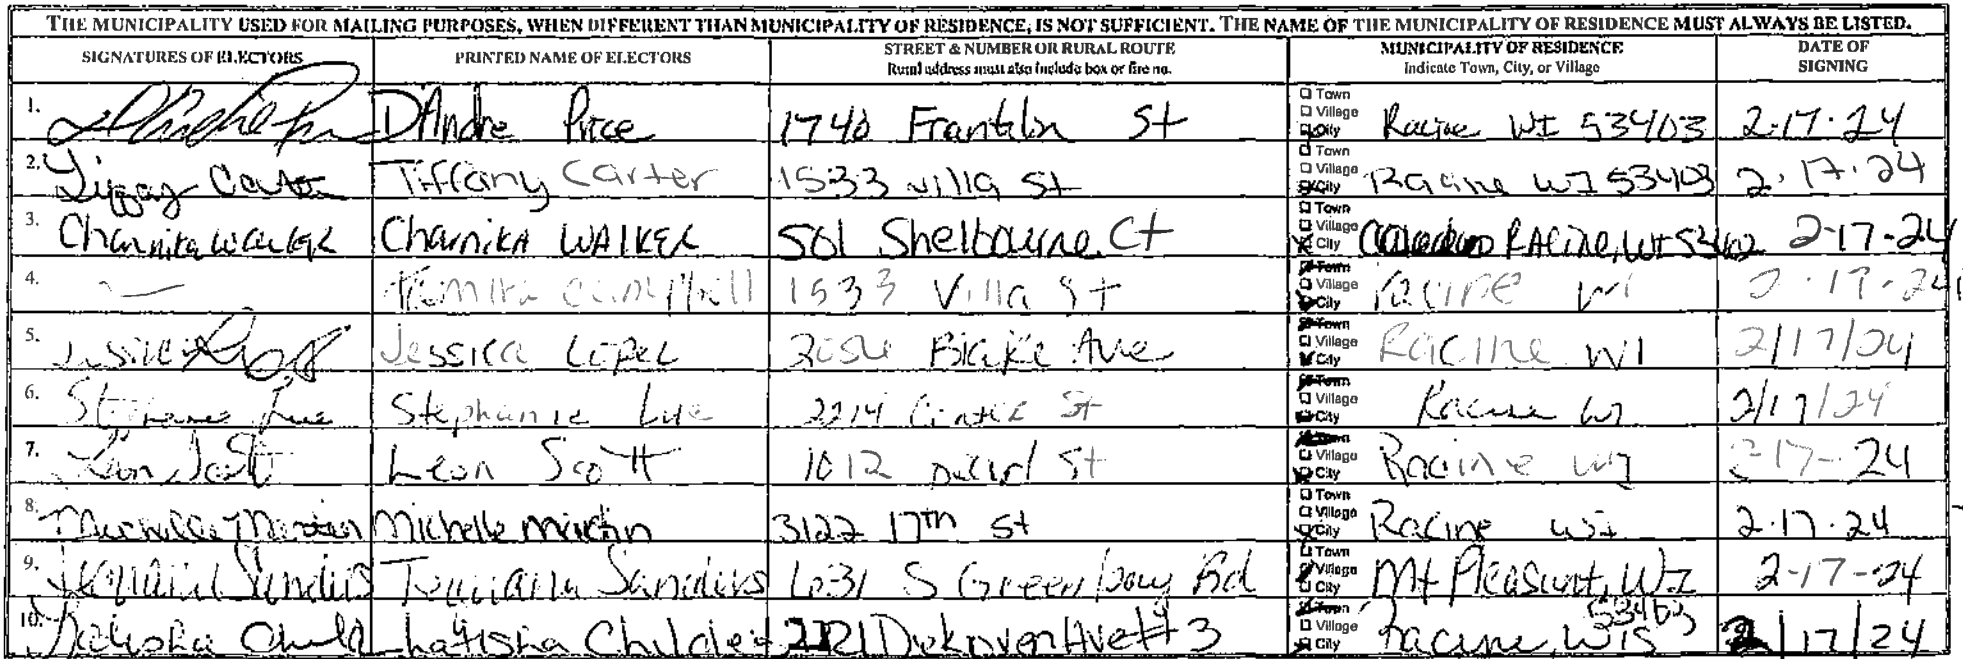 THE MUNICIPALITY USED FOR MAILING PURPOSES, WHEN DIFFERENT THAN MUNICIPALITY OF RESIDENCE, IS NOT SUFFICIENT. THE NAME OF THE MUNICIPALITY OF RESIDENCE MUST ALWAYS BE LISTED.
SIGNATURES OF ELECTORS PRINTED NAME OF ELECTORS STREET & NUMBER OR RURAL ROUTE Rural address must also include box or fire no. MUNICIPALITY OF RESIDENCE Indicate Town, City, or Village DATE OF SIGNING
1. D'Andre Price 1740 Franklin St Town Village City Racine WI 53403 2-17-24
2. Tiffany Carter Tiffany Carter 1533 Villa St Town Village City Racine WI 53403 2.17.24
3. Charnika Walker Charnika WALKER 501 Shelbourne Ct Town Village City RACine, WI 53402 2-17-24
4. Campbell 1533 Villa St Town Village City Racine WI 2-17-24
5. Jessica Lopez 2054 Blake Ave Town Village City Racine WI 2/17/24
6. Stephanie Lue Stephanie Lue 2214 St Town Village City Racine WI 2/17/24
7. Leon Scott Leon Scott 1012 St Town Village City Racine WI 2-17-24
8. Michelle Martin Michelle Martin 3122 17th St Town Village City Racine WI 2.17.24
9. Sanders Sanders 1031 S Green bay Rd Town Village City Mt Pleasant, WI 2-17-24
10. Latisha Childs Latisha Ave #3 Town Village City Racine, WIS 53403 2/17/24